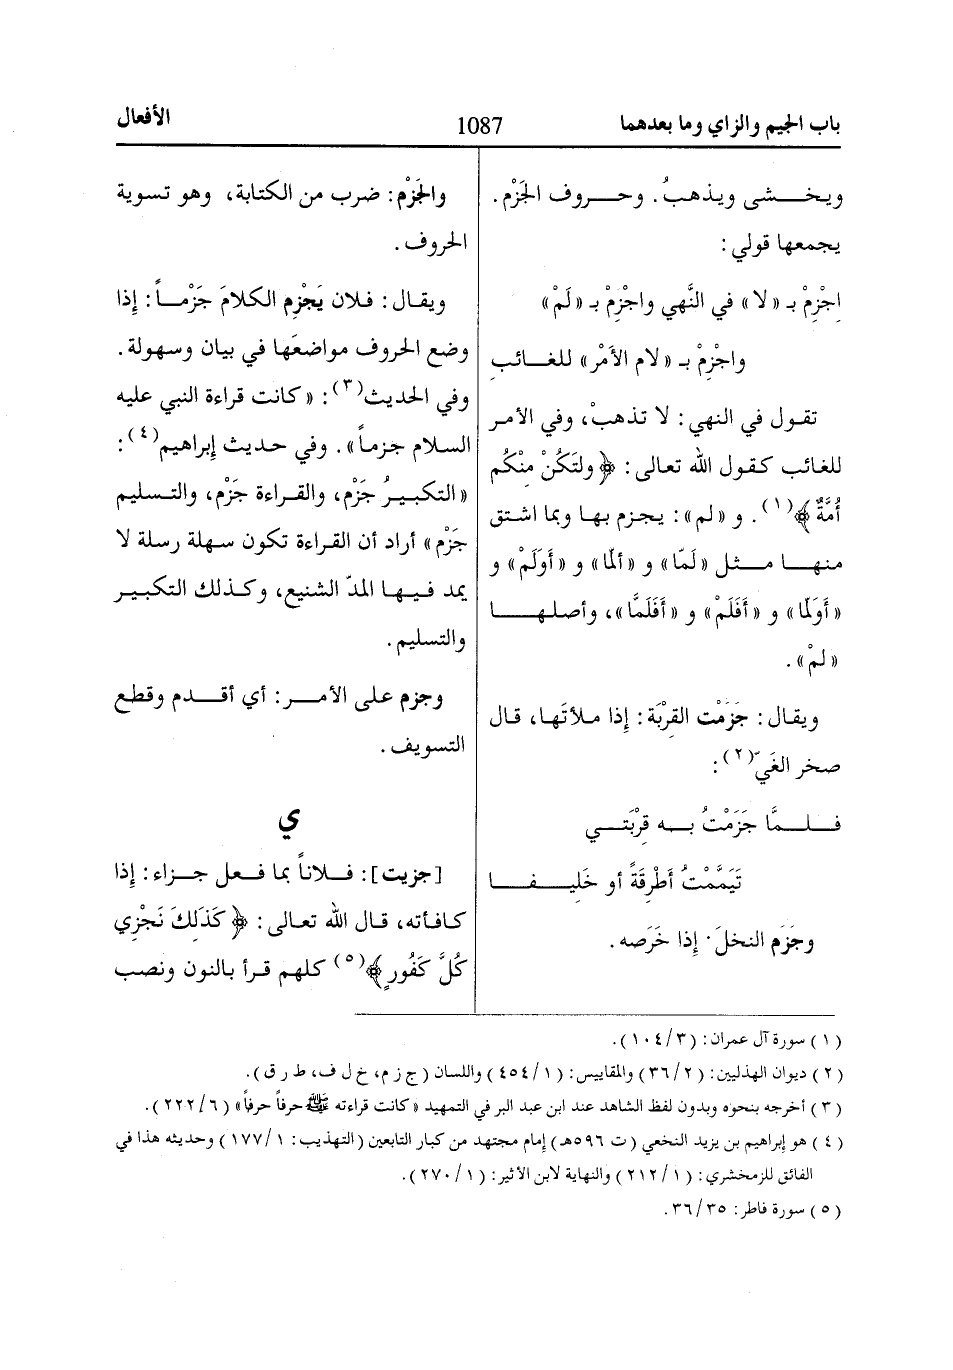 باب الجيم والزاي وما بعدهما
1087
الأفعال
ويخـــشى ويذهبُ. وحـــروف الجَزْم.
يجمعها قولي:
اجْزِمْ بـ «لا» في النَّهي واجْزِمْ بـ «لَمْ»
واجْزِمْ بـ «لام الأَمْر» للغـائبِ
تقـول في النهي: لا تذهبْ، وفي الأمـر
للغائب كـقول الله تعـالى: ﴿ولتَكُنْ مِنْكُم
أُمَّةٌ﴾(١). و «لم»: يـجـزم بـهـا وبما اشـتق
منهـــا مـــثل «لَمّا» و «ألمّا» و «أوَلَمْ» و
«أَوَلَمّا» و «أَفَلَمْ» و «أَفَلَمَّا»، وأصلـهـــا
«لمْ».
ويقـال: جَزَمْت القِرْبَة: إذا مـلأتَـها، قـال
صـخر الغَيّ(٢):
فـــلـــمَّـا جَزَمْتُ بـــه قِرْبَتـــي
تَيَمَّمْتُ أطْرِقَةً أو خَلِيـــفـــا
وجَزَم النخلَ. إذا خَرَصه.
والجَزْم: ضرب من الكتابة، وهو تسوية
الحروف.
ويقـال: فـلان يَجْزِم الكـلامَ جَزْمـــاً: إذا
وضع الحروف مواضعَها في بيان وسهولة.
وفي الحديث(٣): «كانت قراءة النبي عليه
السـلام جـزمـاً». وفي حـديث إبراهيم(٤):
«التكبيـرُ جَزْم، والقـراءة جَزْم، والتـسليم
جَزْم» أراد أن القـراءة تكون سـهلة رسلة لا
يمد فـيـهـا المدّ الشنيع، وكـذلك التكبيـر
والتسليم.
وجزم على الأمـــر: أي أقـــدم وقطع
التسويف.
ي
[جزيت]: فـــلاناً بما فـعل جـزاء: إذا
كـافـأته، قـال الله تعـالى: ﴿كَذَلِكَ نَجْزِي
كُلَّ كَفُورٍ﴾(٥) كلهم قـرأ بـالنون ونصب
(١) سورة آل عمران: (٣/١٠٤).
(٢) ديوان الهذليين: (٢/٣٦) والمقاييس: (١/٤٥٤) واللسان (ج ز م، خ ل ف، ط ر ق).
(٣) أخرجه بنحوه وبدون لفظ الشاهد عند ابن عبد البر في التمهيد «كانت قراءته ﷺ حرفاً حرفاً» (٦/٢٢٢).
(٤) هو إبراهيم بن يزيد النخعي (ت ٥٩٦هـ) إمام مجتهد من كبار التابعين (التهذيب: ١/١٧٧) وحديثه هذا في
الفائق للزمخشري: (١/٢١٢) والنهاية لابن الأثير: (١/٢٧٠).
(٥) سورة فاطر: ٣٥/٣٦.